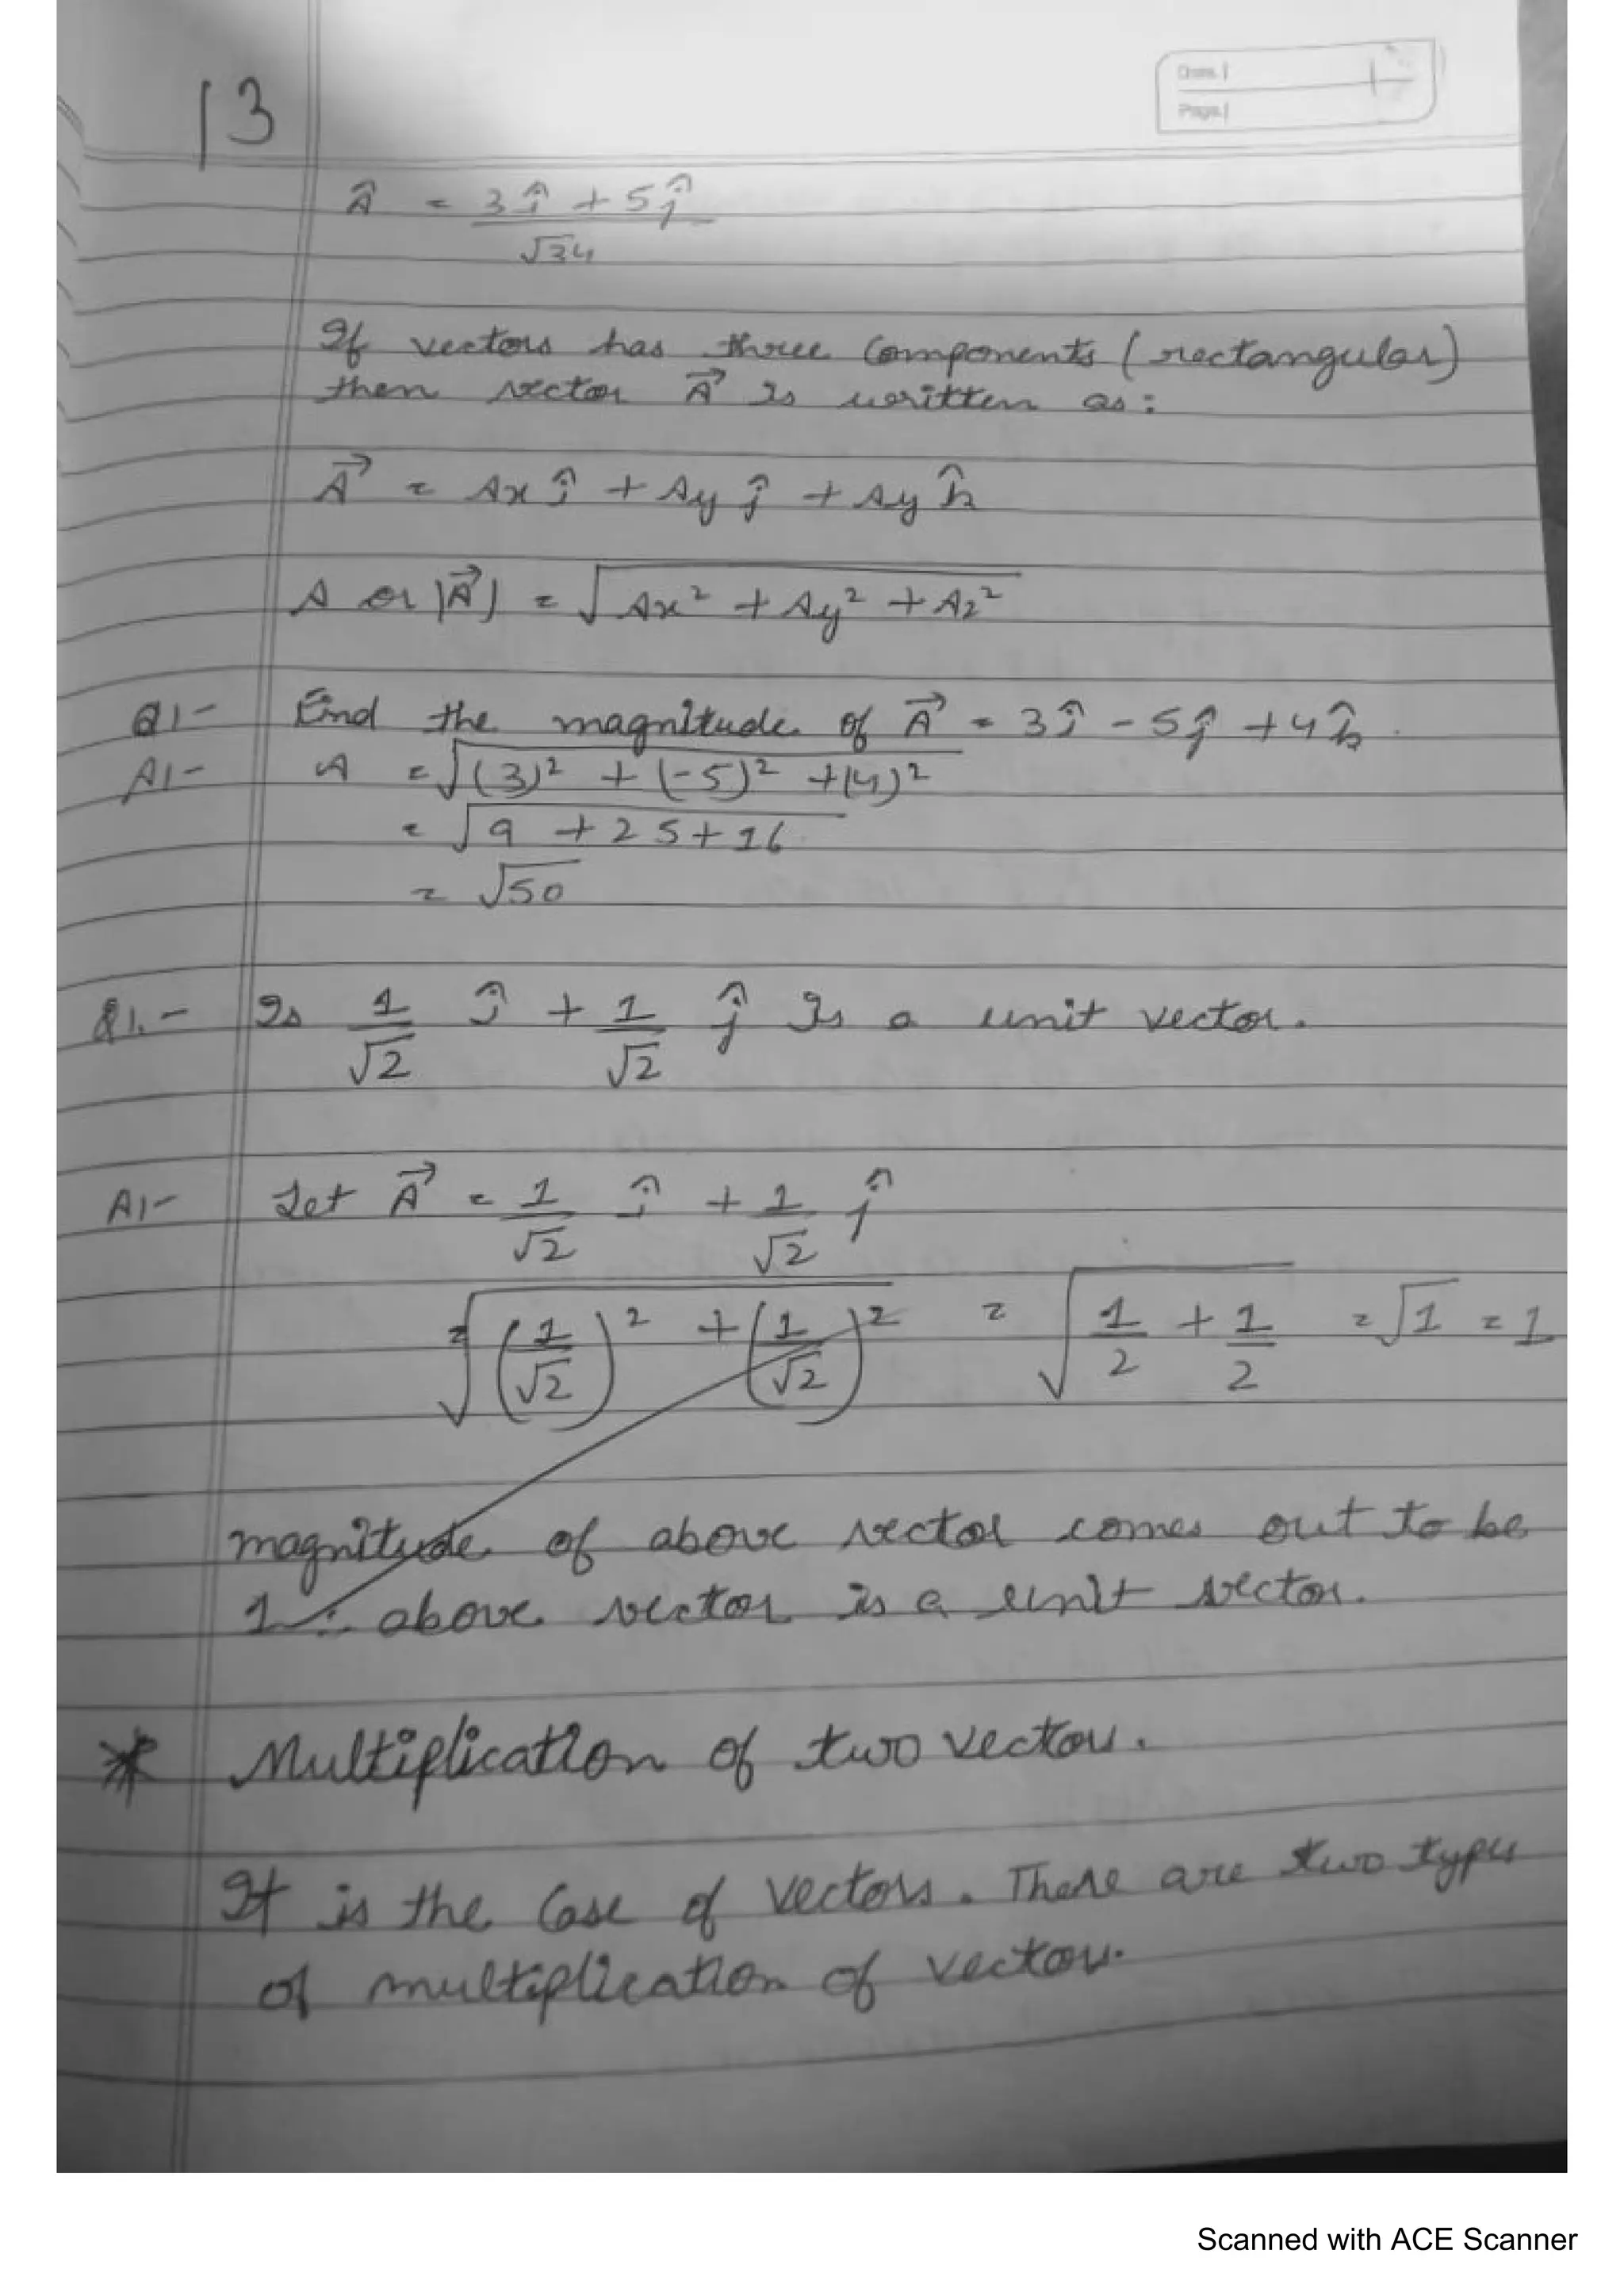 13
Date
Page
Â = 3î + 5ĵ
√34
If vectors has three components (rectangular)
then vector A⃗ is written as:
A⃗ = Ax î + Ay ĵ + Ay k̂
A or |A⃗| = √Ax² + Ay² + Az²
Q1- Find the magnitude of A⃗ = 3î - 5ĵ + 4k̂.
A1- A = √(3)² + (-5)² + (4)²
= √9 + 25 + 16
= √50
Q1.- Is 1/√2 î + 1/√2 ĵ Is a unit vector.
A1- Let A⃗ = 1/√2 î + 1/√2 ĵ
= √(1/√2)² + (1/√2)² = √1/2 + 1/2 = √1 = 1
magnitude of above vector comes out to be
1 ∴ above vector is a unit vector.
* Multiplication of two vectors.
It is the Case of vectors. There are two types
of multiplication of vectors.
Scanned with ACE Scanner